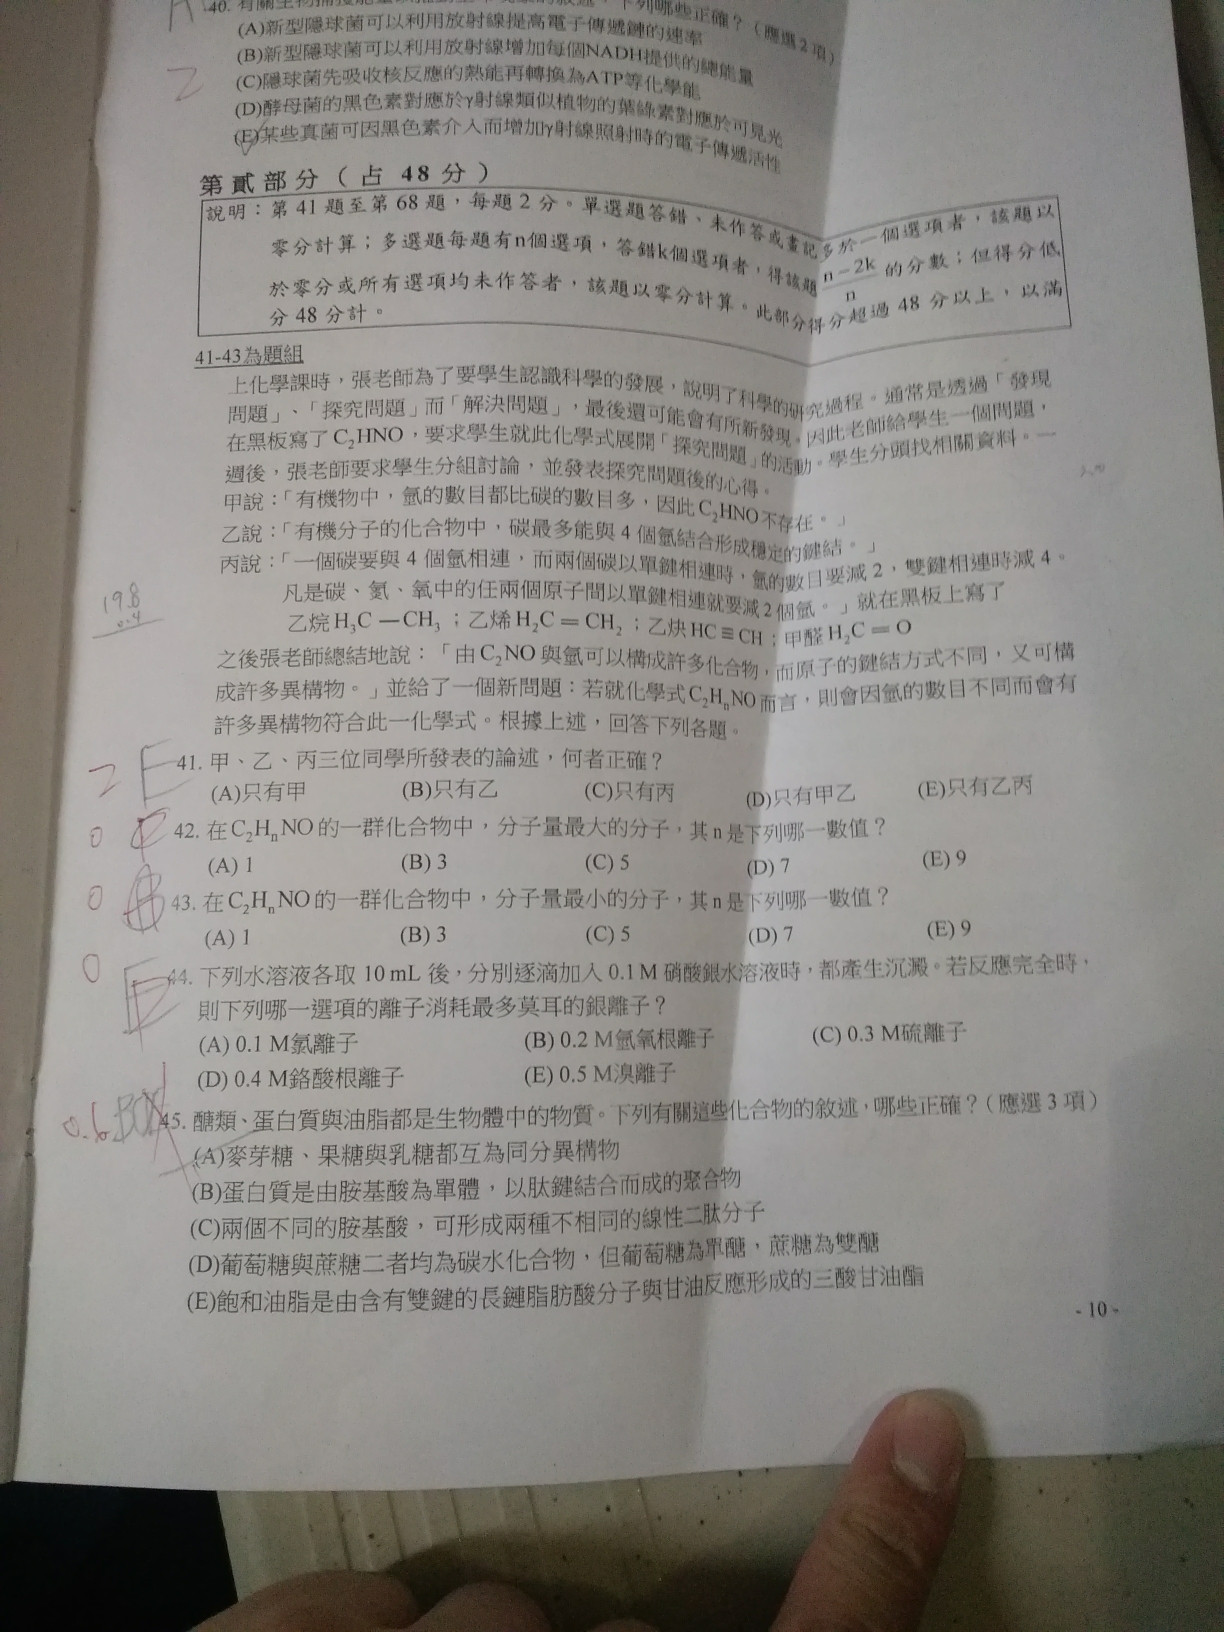 40. 有關生物捕捉能量 下列哪些正確？（應選2項）
(A)新型隱球菌可以利用放射線提高電子傳遞鏈的速率
(B)新型隱球菌可以利用放射線增加每個NADH提供的總能量
(C)隱球菌先吸收核反應的熱能再轉換為ATP等化學能
(D)酵母菌的黑色素對應於γ射線類似植物的葉綠素對應於可見光
(E)某些真菌可因黑色素介入而增加γ射線照射時的電子傳遞活性
2
第貳部分（占 48 分）
說明：第 41 題至第 68 題，每題 2 分。單選題答錯、未作答或畫記多於一個選項者，該題以
零分計算；多選題每題有n個選項，答錯k個選項者，得該題 n－2k / n 的分數；但得分低
於零分或所有選項均未作答者，該題以零分計算。此部分得分超過 48 分以上，以滿
分 48 分計。
41-43為題組
上化學課時，張老師為了要學生認識科學的發展，說明了科學的研究過程。通常是透過「發現
問題」、「探究問題」而「解決問題」，最後還可能會有所新發現。因此老師給學生一個問題，
在黑板寫了C₂HNO，要求學生就此化學式展開「探究問題」的活動。學生分頭找相關資料。一
週後，張老師要求學生分組討論，並發表探究問題後的心得。
甲說：「有機物中，氫的數目都比碳的數目多，因此C₂HNO不存在。」
乙說：「有機分子的化合物中，碳最多能與 4 個氫結合形成穩定的鍵結。」
丙說：「一個碳要與 4 個氫相連，而兩個碳以單鍵相連時，氫的數目要減 2，雙鍵相連時減 4。
凡是碳、氮、氧中的任兩個原子間以單鍵相連就要減2個氫。」就在黑板上寫了
乙烷 H₃C－CH₃；乙烯 H₂C＝CH₂；乙炔 HC≡CH；甲醛 H₂C＝O
19.8
0.4
之後張老師總結地說：「由C₂NO與氫可以構成許多化合物，而原子的鍵結方式不同，又可構
成許多異構物。」並給了一個新問題：若就化學式C₂HₙNO而言，則會因氫的數目不同而會有
許多異構物符合此一化學式。根據上述，回答下列各題。
2 E 41. 甲、乙、丙三位同學所發表的論述，何者正確？
(A)只有甲 (B)只有乙 (C)只有丙 (D)只有甲乙 (E)只有乙丙
0 42. 在C₂HₙNO的一群化合物中，分子量最大的分子，其n是下列哪一數值？
(A) 1 (B) 3 (C) 5 (D) 7 (E) 9
0 43. 在C₂HₙNO的一群化合物中，分子量最小的分子，其n是下列哪一數值？
(A) 1 (B) 3 (C) 5 (D) 7 (E) 9
0 E 44. 下列水溶液各取 10 mL 後，分別逐滴加入 0.1 M 硝酸銀水溶液時，都產生沉澱。若反應完全時，
則下列哪一選項的離子消耗最多莫耳的銀離子？
(A) 0.1 M氯離子 (B) 0.2 M氫氧根離子 (C) 0.3 M硫離子
(D) 0.4 M鉻酸根離子 (E) 0.5 M溴離子
0.6 45. 醣類、蛋白質與油脂都是生物體中的物質。下列有關這些化合物的敘述，哪些正確？（應選 3 項）
(A)麥芽糖、果糖與乳糖都互為同分異構物
(B)蛋白質是由胺基酸為單體，以肽鍵結合而成的聚合物
(C)兩個不同的胺基酸，可形成兩種不相同的線性二肽分子
(D)葡萄糖與蔗糖二者均為碳水化合物，但葡萄糖為單醣，蔗糖為雙醣
(E)飽和油脂是由含有雙鍵的長鏈脂肪酸分子與甘油反應形成的三酸甘油酯
- 10 -